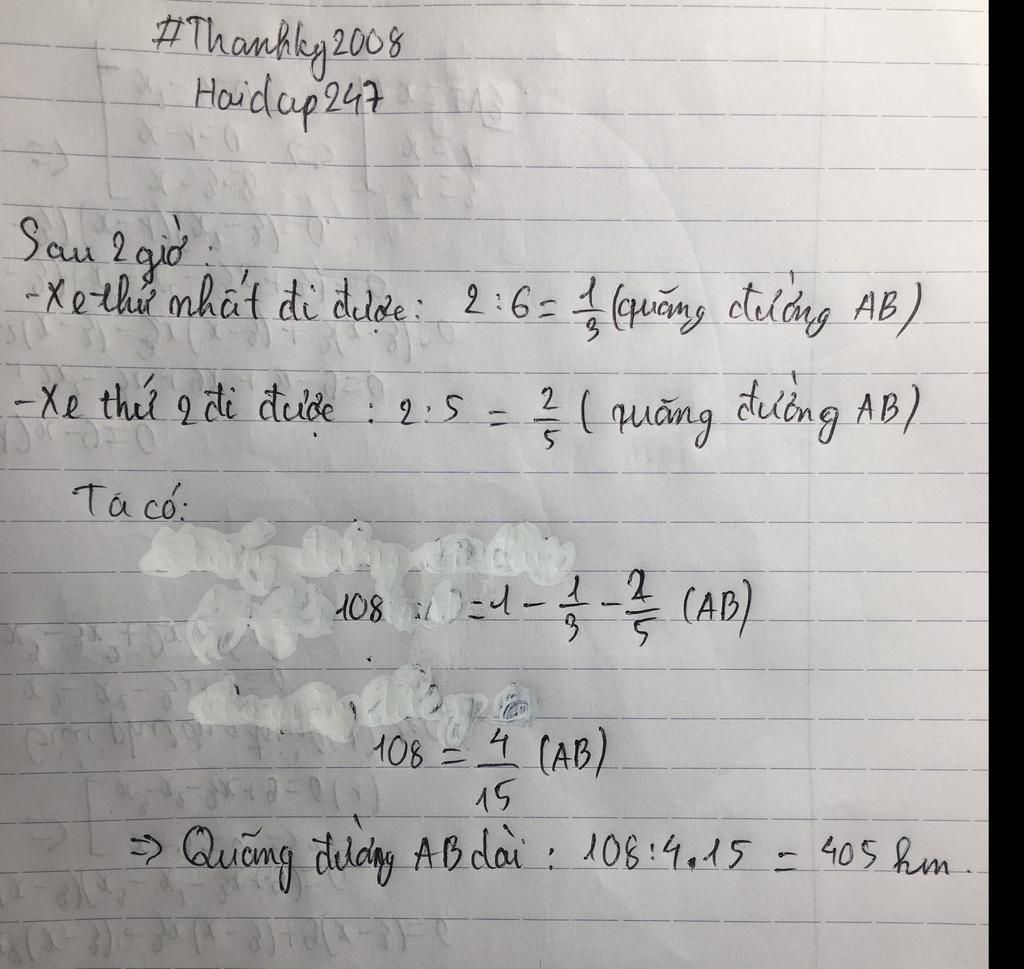 #Thanhky2008
Hoidap247
Sau 2 giờ:
-Xe thứ nhất đi được: 2:6 = 1/3 (quãng đường AB)
-Xe thứ 2 đi được : 2:5 = 2/5 ( quãng đường AB)
Ta có:
108 = 1 - 1/3 - 2/5 (AB)
108 = 4/15 (AB)
=> Quãng đường AB dài : 108:4.15 = 405 km.